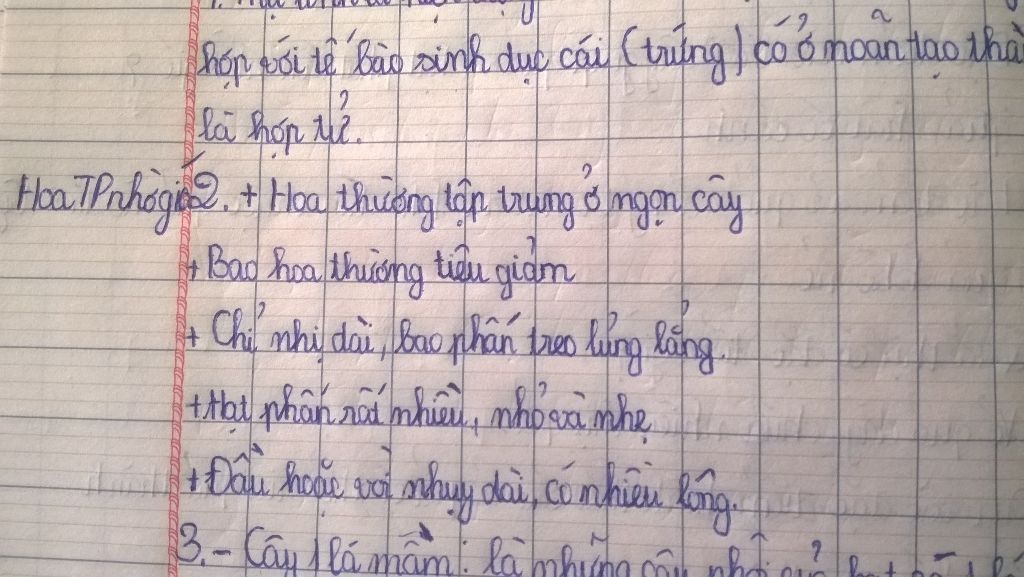 hợp với tế bào sinh dục cái (trứng) có ở noãn tạo thà
là hợp tử.
Hoa TP nhờ gió 2. + Hoa thường tập trung ở ngọn cây
+ Bao hoa thường tiêu giảm
+ Chỉ nhị dài, bao phấn treo lủng lẳng.
+ Hạt phấn rất nhiều, nhỏ và nhẹ
+ Đầu hoặc vòi nhụy dài, có nhiều lông.
3. - Cây 1 lá mầm: là những cây phôi